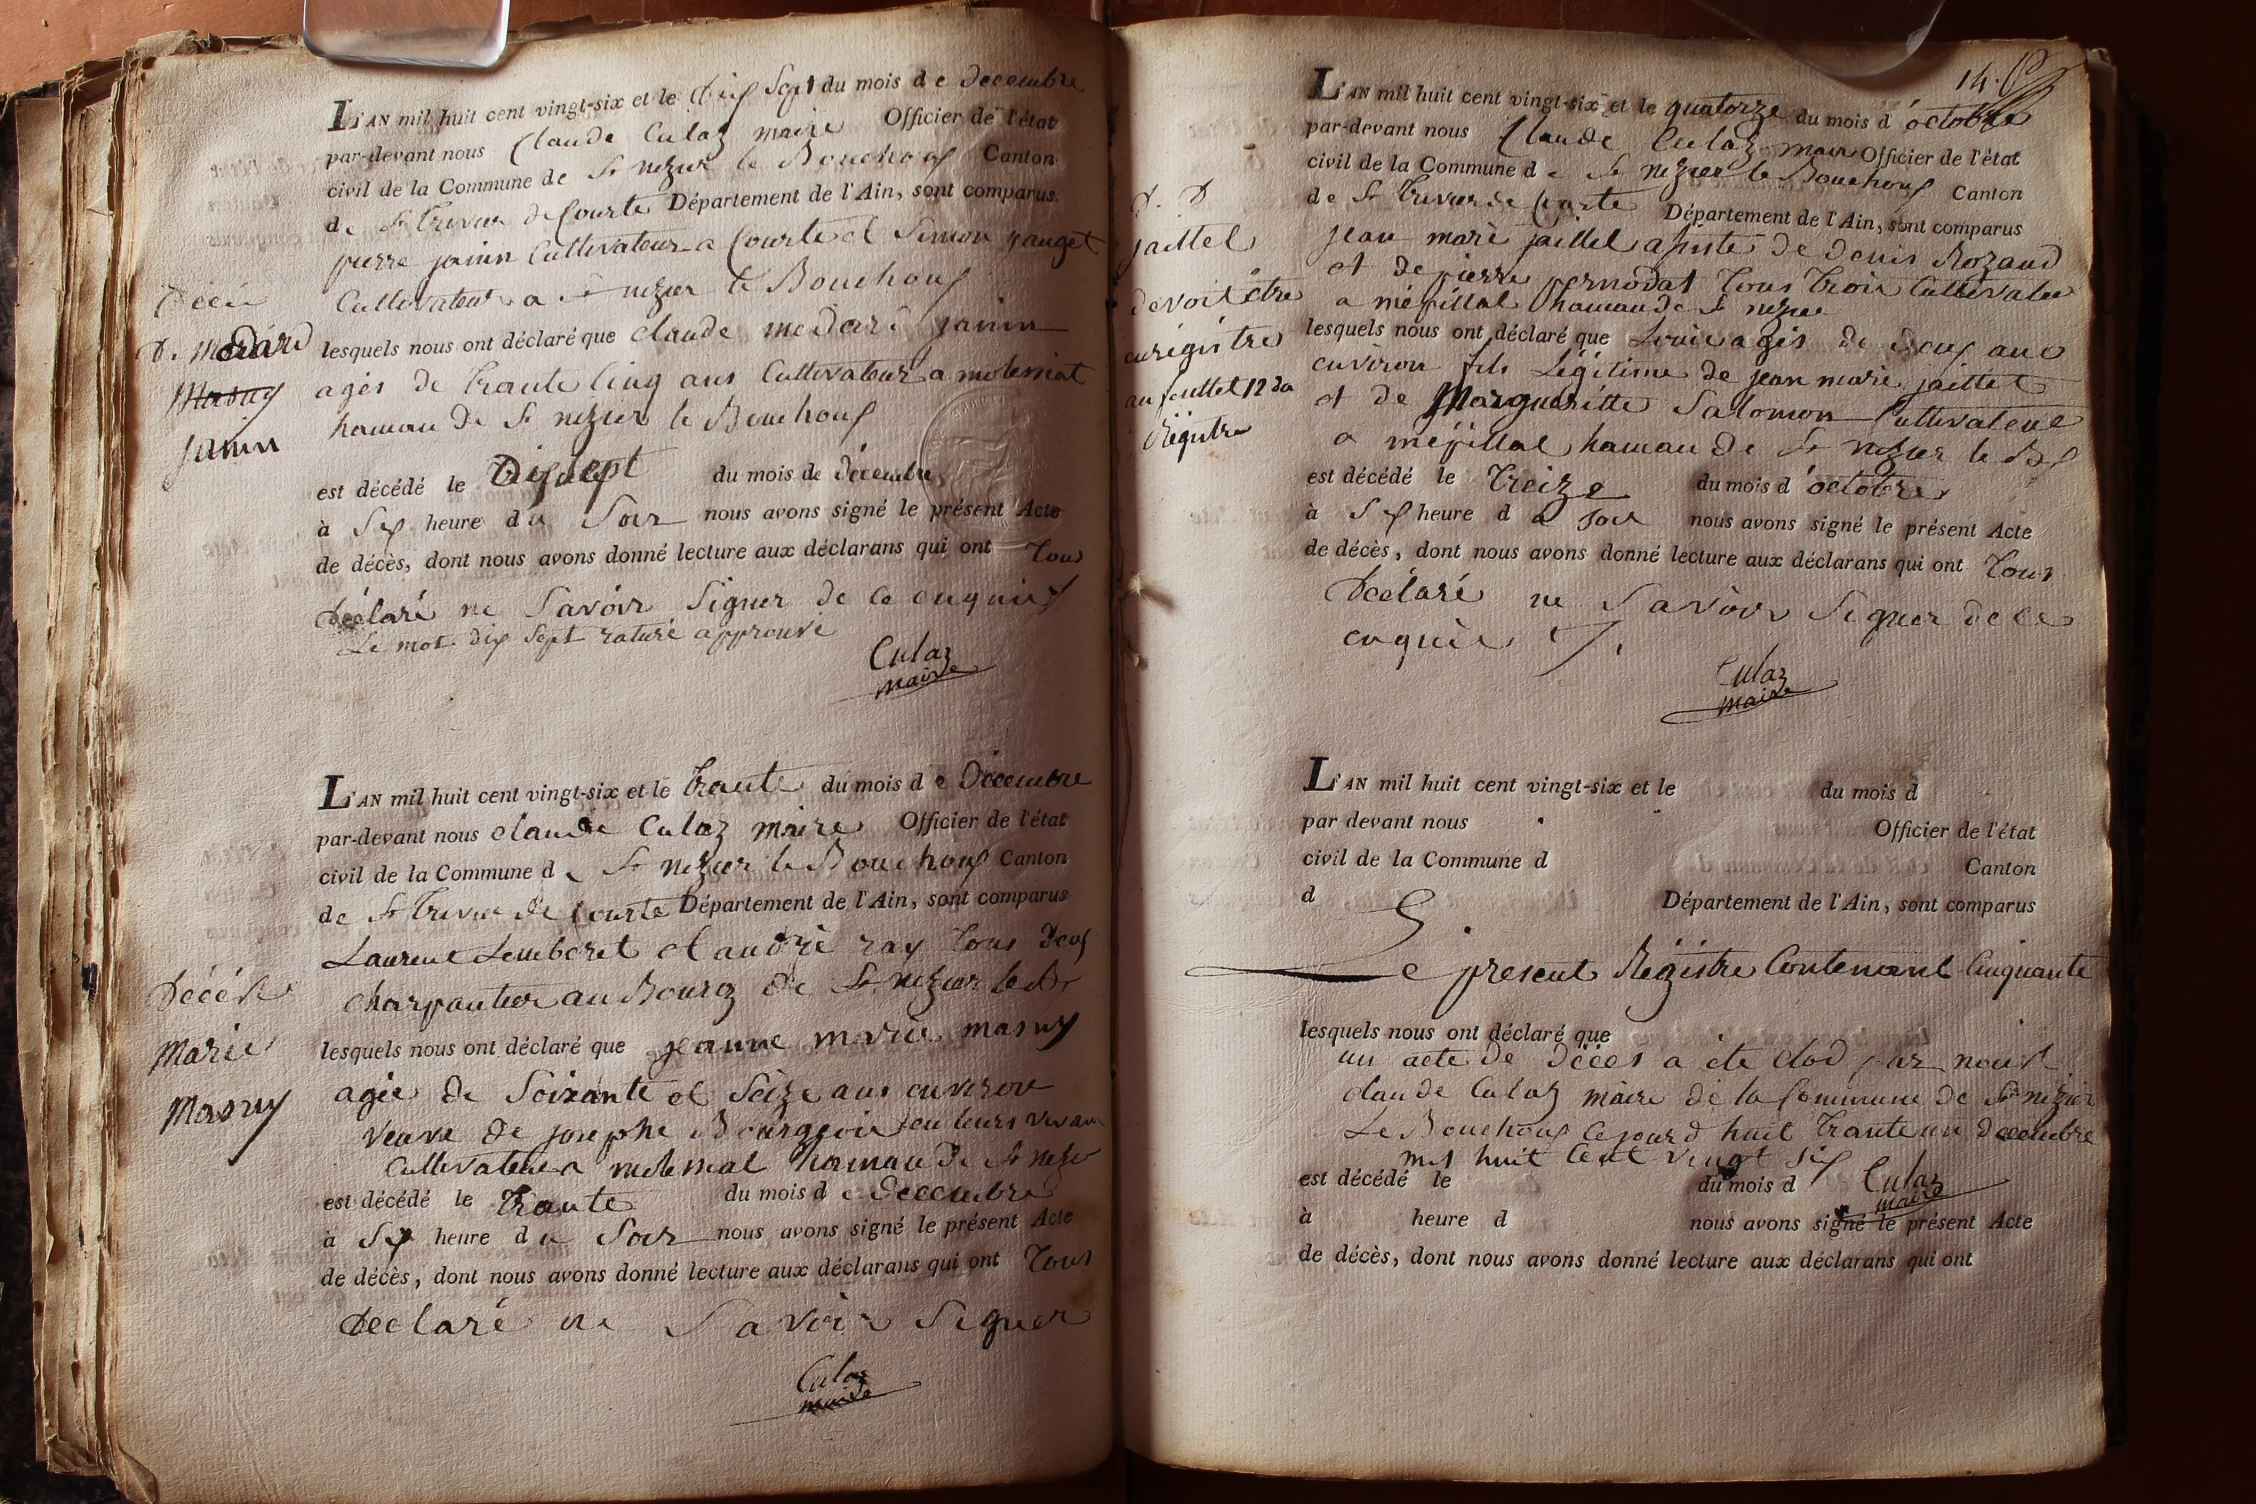 L'AN mil huit cent vingt-six et le dix Sept du mois de decembre
par-devant nous Claude Culaz maire Officier de l'état
civil de la Commune de St nezier le Bouchoux Canton
de St trivier de Courte Département de l'Ain, sont comparus
pierre janin Cultivateur a Courte et Simon
Cultivateur a St nezier le Bouchoux
lesquels nous ont déclaré que claude medard janin
agés de trante Cinq ans Cultivateur a molemiat
hamau de St nezier le Bouchoux
est décédé le Dix sept du mois de décembre
à Six heure du Soir nous avons signé le présent Acte
de décès, dont nous avons donné lecture aux déclarans qui ont tous
Déclaré ne Savoir Signer de ce enquis
Le mot dix Sept raturé approuvé
Culaz
maire
Décé
Medard
Masuy
janin
L'AN mil huit cent vingt-six et le trante du mois de Décembre
par-devant nous claude Culaz maire Officier de l'état
civil de la Commune de St nezier le Bouchoux Canton
de St trivier de Courte Département de l'Ain, sont comparus
Laurent Lemberet et andré ray tous deux
charpantier au Bourg de St nezier le Bx
lesquels nous ont déclaré que jeanne marie masuy
agée de Soixante et Seize ans environ
veuve de josephe Bourgeois en leurs vivant
Cultivateur a molemiat hamau de St nezier
est décédé le trante du mois de decembre
à Six heure du Soir nous avons signé le présent Acte
de décès, dont nous avons donné lecture aux déclarans qui ont tous
Declaré ne Savoir Signer
Culaz
maire
Décés
Marie
Masuy
14.
L'AN mil huit cent vingt-six et le quatorze du mois d'octobre
par-devant nous Claude Culaz maire Officier de l'état
civil de la Commune de St nezier le Bouchoux Canton
de St trivier de Courte Département de l'Ain, sont comparus
jean marie jaillet assisté de denis Rozand
et de pierre pernodat tous trois Cultivateur
a mépillat hamau de St nezier
lesquels nous ont déclaré que Louis agés de deux ans
environ fils Légitime de jean marie jaillet
et de Margueritte Salomon Cultivateur
a mépillat hamau de St nezier le Bx
est décédé le treize du mois d'octobre
à Six heure du Soir nous avons signé le présent Acte
de décès, dont nous avons donné lecture aux déclarans qui ont tous
Déclaré ne Savoir Signer de ce
enquis
Culaz
maire
D. D
jaillet
devoit être
enrégistré
au feuillet 12 du
Régistre
L'AN mil huit cent vingt-six et le du mois d
par devant nous Officier de l'état
civil de la Commune d Canton
d Département de l'Ain, sont comparus
Le present Régistre Contenant Cinquante
lesquels nous ont déclaré que
un acte de Décés a été clod par nous
claude Culaz maire de la Commune de St nezier
Le Bouchoux Cejourd'huit trante un Decembre
mil huit Cent vingt six
est décédé le du mois d
Culaz
maire
à heure d nous avons signé le présent Acte
de décès, dont nous avons donné lecture aux déclarans qui ont